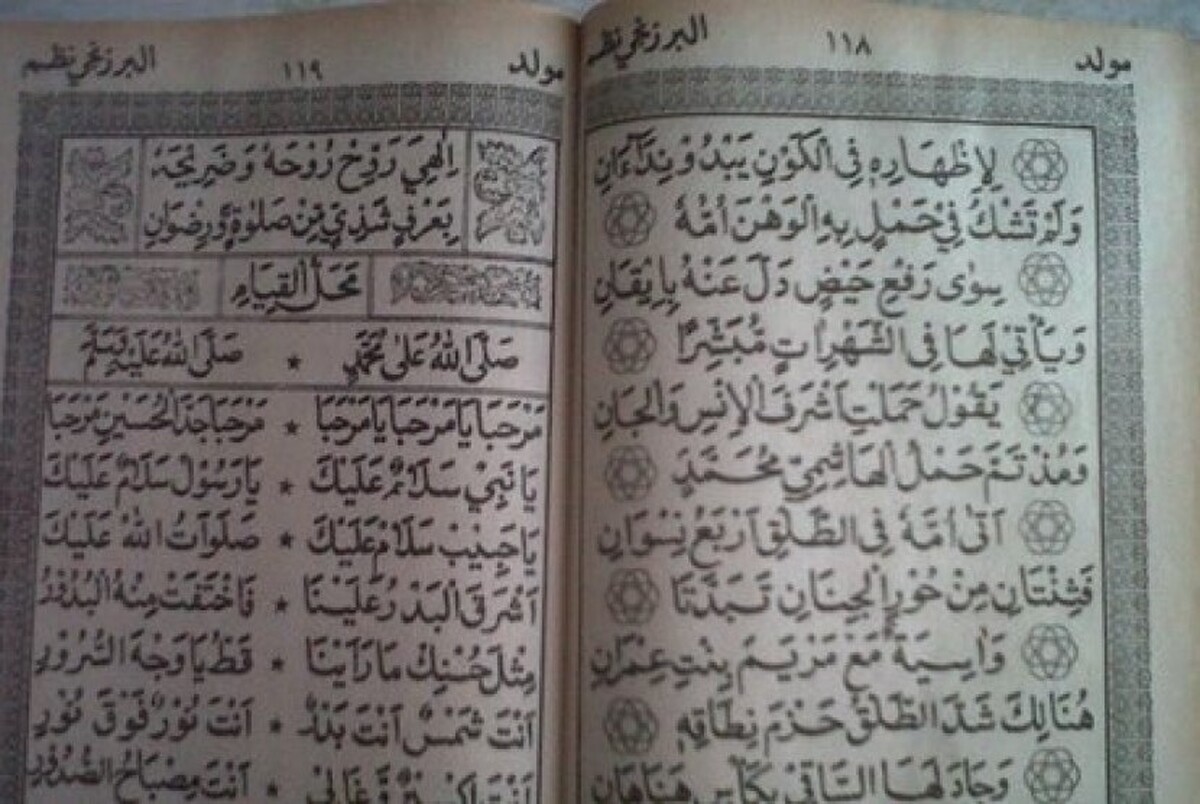 مولد ١١٨ البرزنجي نظم
لِاِظْهَارِهٖ فِى الْكَوْنِ يَبْدُوْ نِدَآءَانِ
وَلَمْ تَشْكُ فِيْ حَمْلٍ بِهِ الْوَهْنَ اُمُّهٗ
سِوٰى رَفْعِ حَيْضٍ دَلَّ عَنْهُ بِاِيْقَانِ
وَيَأْتِيْ لَهَا فِى الشَّهْرِاٰتٍ مُبَشِّرًا
يَقُوْلُ حَمَلْتِ اَشْرَفَ الْاِنْسِ وَالْجَانِ
وَمُذْ تَمَّ حَمْلُ الْهَاشِمِيِّ مُحَمَّدٍ
اَتٰى اُمَّهٗ فِى الطَّلْقِ اَرْبَعُ نِسْوَانِ
فَثِنْتَانِ مِنْ حُوْرِ الْجِنَانِ تَبَدَّتَا
وَاٰسِيَةٌ مَعْ مَرْيَمَ بِنْتِ عِمْرَانِ
هُنَالِكَ شَدَّ الطَّلْقُ حَزْمَ نِطَاقِهٖ
وَجَادَ لَهَا السَّاقِيْ بِكَأْسٍ هَنَاهَانِ
مولد ١١٩ البرزنجي نظم
اِلٰهِيْ رَوِّحْ رُوْحَهٗ وَضَرِيْحَهٗ
بِعَرْفٍ شَذِيٍّ مِنْ صَلٰوةٍ وَرِضْوَانِ
مَحَلُّ الْقِيَامِ
صَلَّى اللّٰهُ عَلٰى مُحَمَّدٍ ★ صَلَّى اللّٰهُ عَلَيْهِ وَسَلَّمْ
مَرْحَبًا يَا مَرْحَبًا يَا مَرْحَبَا ★ مَرْحَبًا جَدَّ الْحُسَيْنِ مَرْحَبَا
يَا نَبِيْ سَلَامٌ عَلَيْكَ ★ يَا رَسُوْلْ سَلَامٌ عَلَيْكَ
يَا حَبِيْبْ سَلَامٌ عَلَيْكَ ★ صَلَوَاتُ اللّٰهْ عَلَيْكَ
اَشْرَقَ الْبَدْرُ عَلَيْنَا ★ فَاخْتَفَتْ مِنْهُ الْبُدُوْرُ
مِثْلَ حُسْنِكْ مَا رَاَيْنَا ★ قَطُّ يَا وَجْهَ السُّرُوْرِ
اَنْتَ شَمْسٌ اَنْتَ بَدْرٌ ★ اَنْتَ نُوْرٌ فَوْقَ نُوْرِ
اَنْتَ اِكْسِيْرٌ وَغَالِيْ ★ اَنْتَ مِصْبَاحُ الصُّدُوْرِ